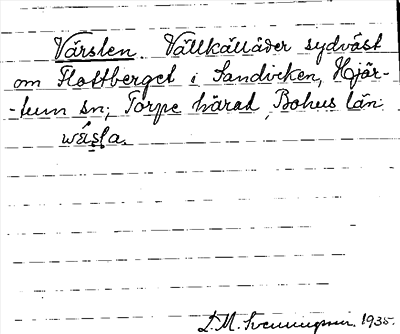 Värsten. Vällkälläder sydväst
om Flottberget i Sandviken, Hjär-
-tum sn, Torpe härad, Bohus län
wä̀sta.
D.M. Svenningson. 1935.